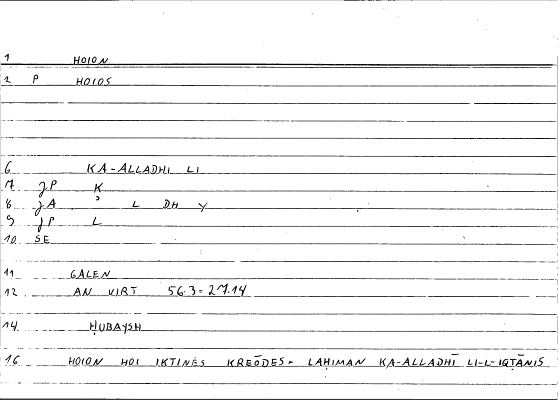 1 HOION
2 P HOIOS
6 KA-ALLADHI LI
7 JP K
8 JA ʾ L DH Y
9 JP L
10 SE
11 GALEN
12 AN VIRT 56.3=27.14
14 ḤUBAYSH
16 HOION HOI IKTINES KREŌDES= LAḤIMAN KA-ALLADHĪ LI-L-IQTĀNIS